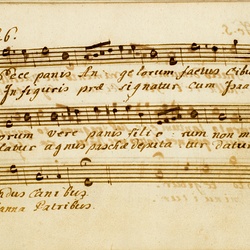 26.
Ecce panis An gelorum factus Cibus
In figuris præ signatur cum Isaac
orum vere panis fili o rum non m
latur agnus paschæ deputa tur datur
dus cani bus.
anna Patribus.